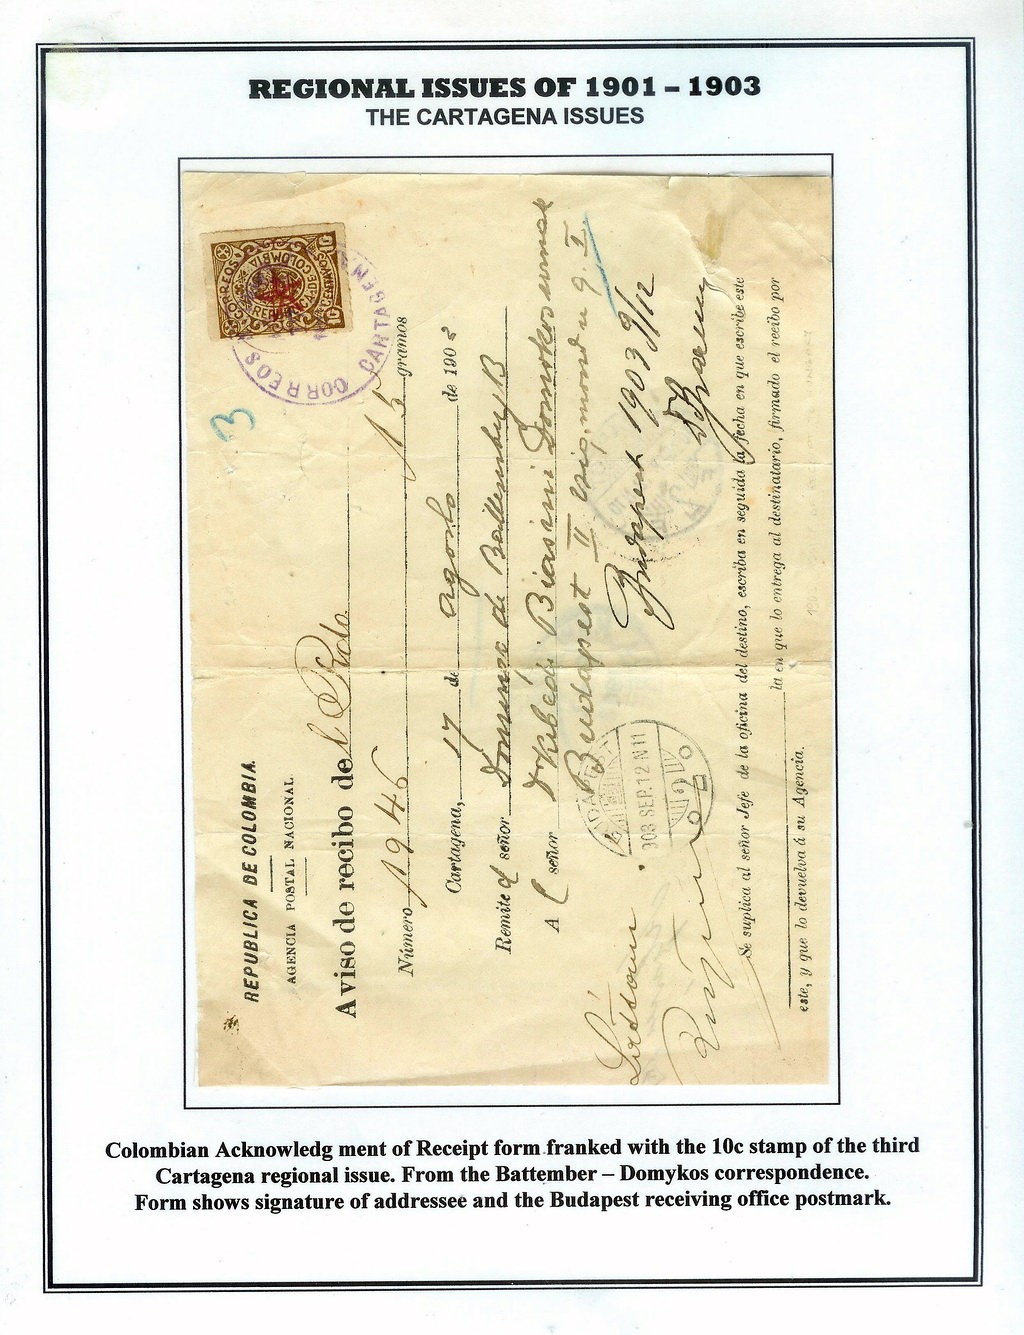 REGIONAL ISSUES OF 1901 – 1903
THE CARTAGENA ISSUES
REPUBLICA DE COLOMBIA.
AGENCIA POSTAL NACIONAL
Aviso de recibo de l Rdo
Número 1946 15 gramos
Cartagena, 17 de agosto de 1903
Remite el señor Domingo de Battemberg B
A l señor Dr Kibédi Biasini Domokosnak
Budapest II
Budapest 1903 9/12
903 SEP. 12 N 11
Láttam
Se suplica al señor Jefe de la oficina del destino, escriba en seguida la fecha en que escribe este
la en que lo entrega al destinatario, firmado el recibo por
este, y que lo devuelva á su Agencia.
CORREOS
REPUBLICA DE COLOMBIA
10 CENTAVOS 10
CORREOS CARTAGENA
3
Colombian Acknowledg ment of Receipt form franked with the 10c stamp of the third
Cartagena regional issue. From the Battember – Domykos correspondence.
Form shows signature of addressee and the Budapest receiving office postmark.